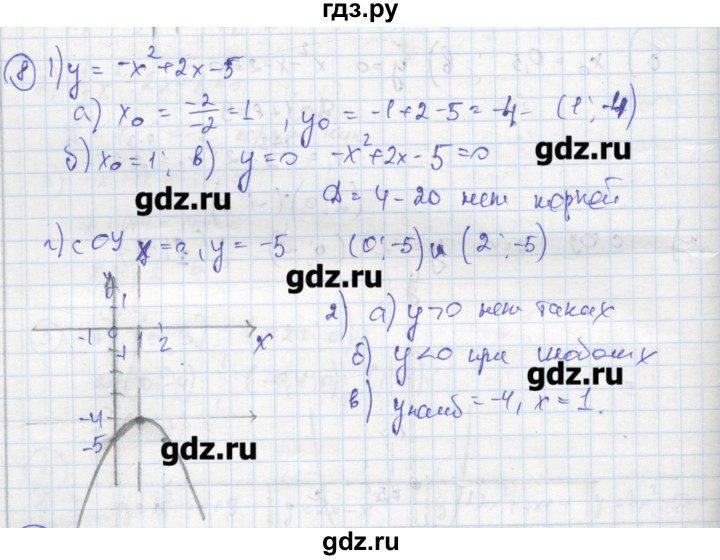 гдз.ру
8 1) y = -x²+2x-5
а) x₀ = -2/-2 = 1, y₀ = -1+2-5 = -4 (1; -4)
б) x₀ = 1; в) y=0 -x²+2x-5=0
gdz.ru
gdz.ru
Д = 4-20 нет корней
г) с ОУ x=0, y = -5 (0; -5) и (2; -5)
gdz.ru
y
1
-1 0 1 2 x
-1
-4
-5
2) а) y>0 нет таких
б) y<0 при любых x
gdz.ru
в) yнаиб = -4, x = 1.
gdz.ru